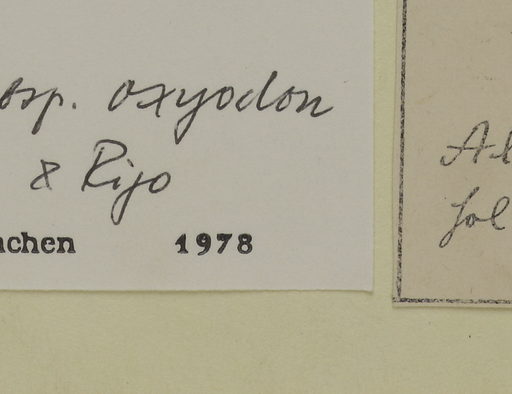 ssp. oxyodon
& Rijo
nchen 1978
Al
fol